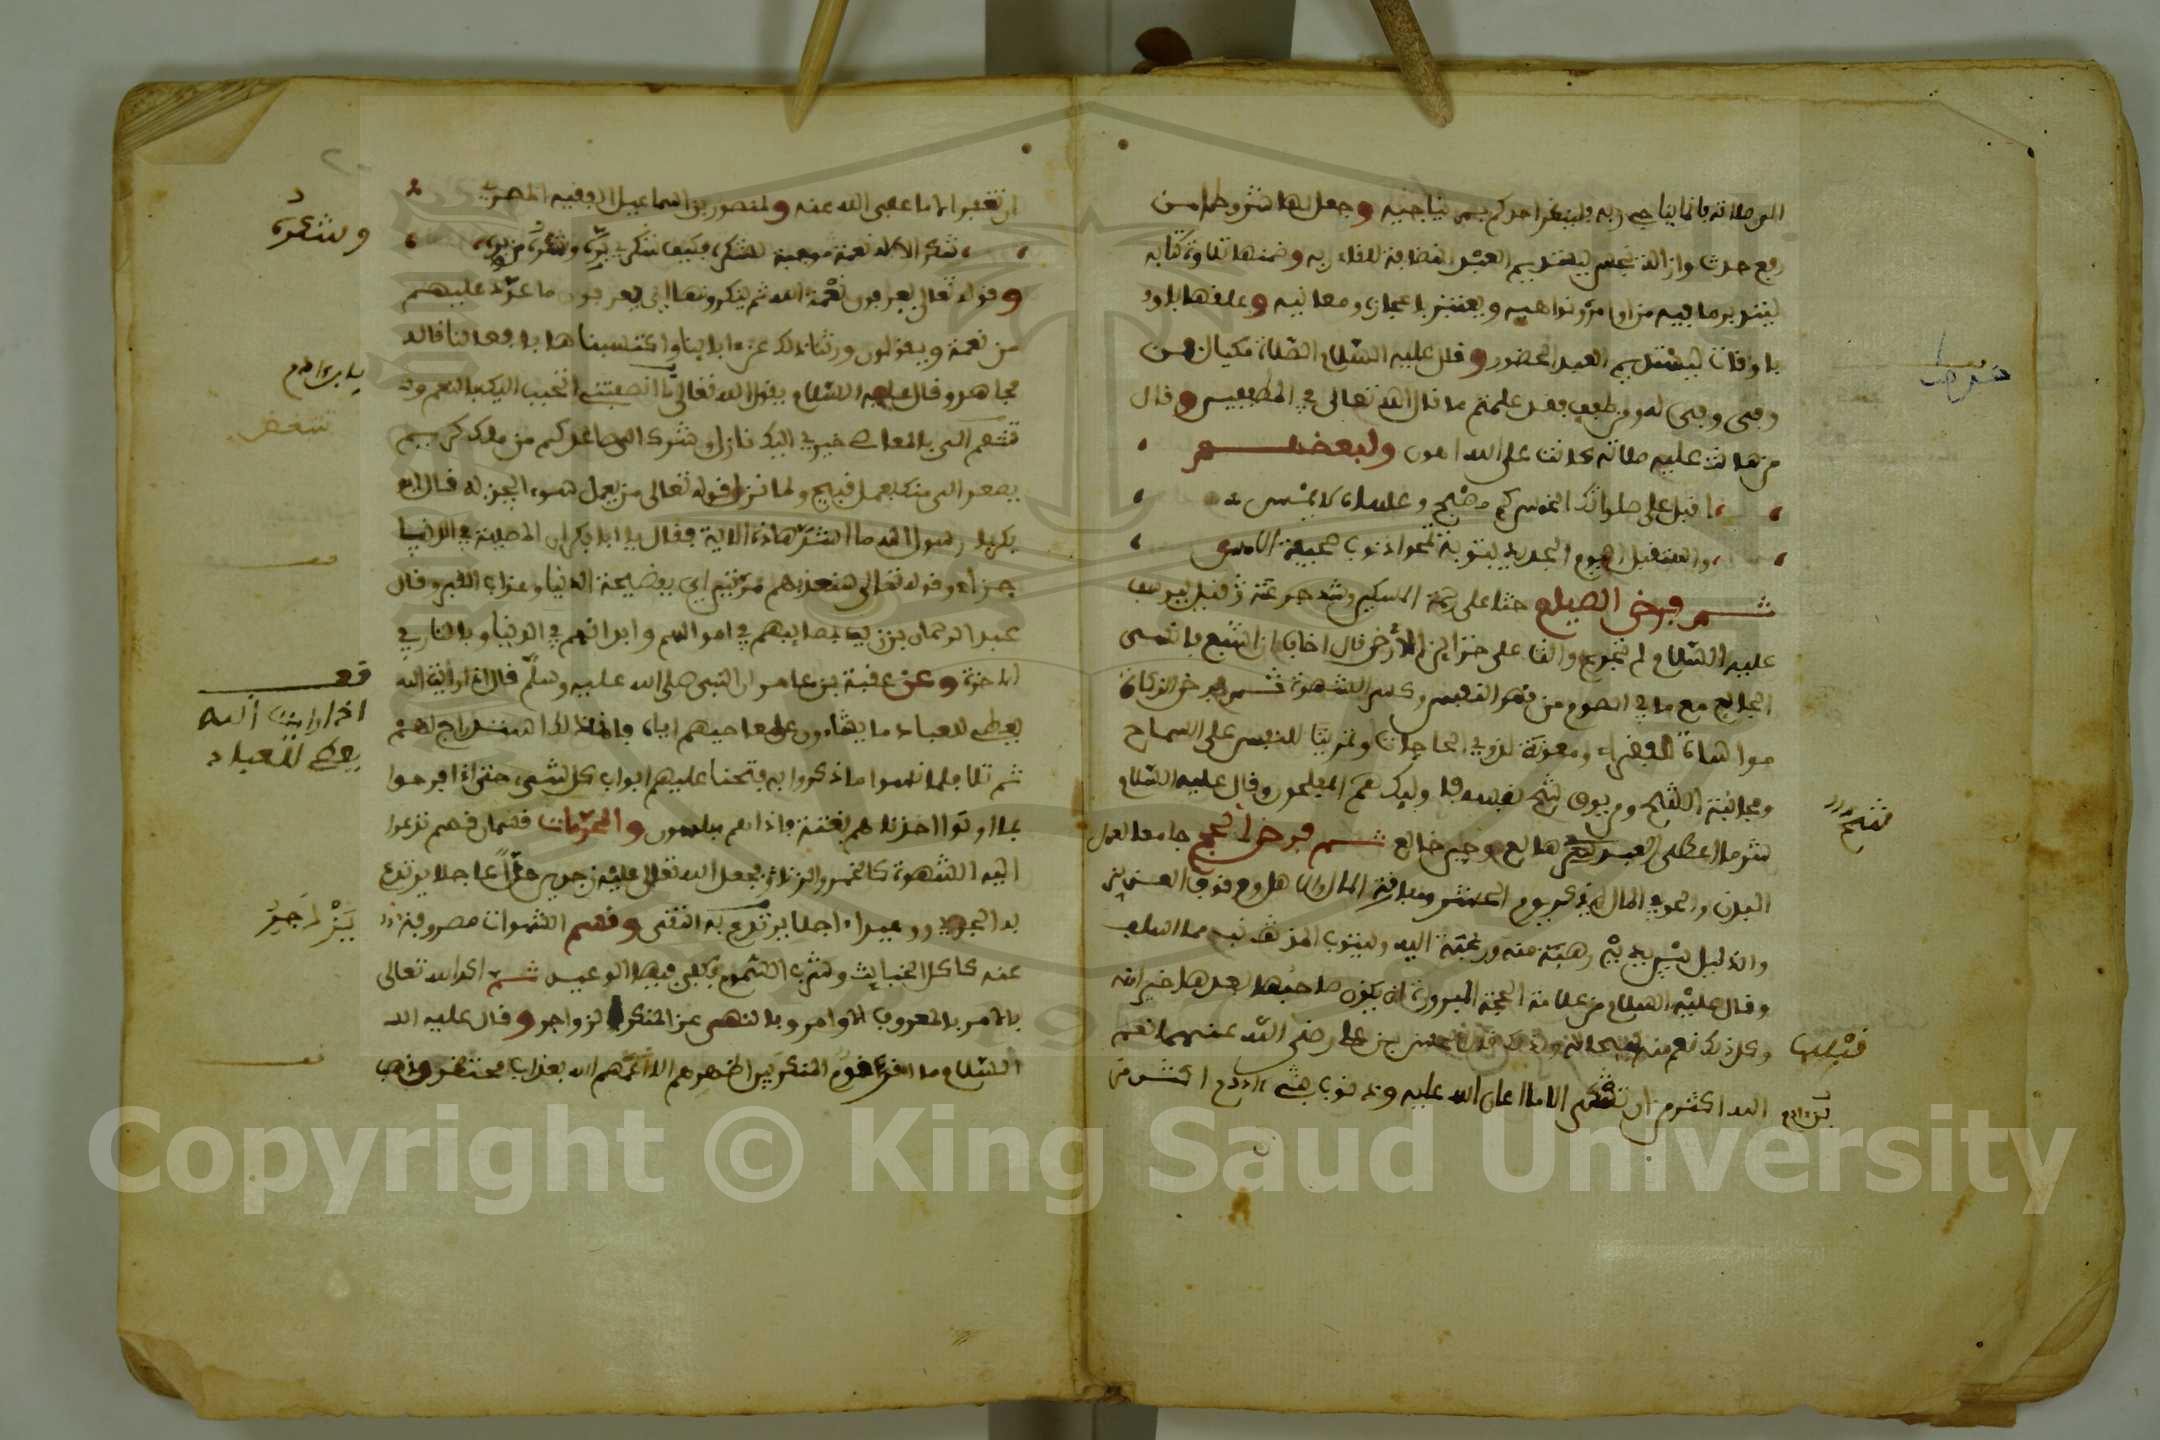 الى صلاته فانما يناجي ربه فلينظر احدكم بمن يناجيه وجعل لها شروطا من
رفع حدث وازالة نجس ليستديم العبد النظافة للقاء ربه وضمنها تلاوة كتابه
ليتدبر ما فيه من اوامره ونواهيه ويعتبر باعجازه ومعانيه وعلقها
باوقات ليستديم العبد الحضور وقال عليه السلام الصلاة مكيال فمن
وفى وفى له ومن طفف فقد علمتم ما قال الله تعالى في المطففين وقال
من هانت عليه صلاته كانت على الله اهون ولبعضهم
اقبل على صلواتك الخمس كم مصبح وعساه لا يمسى
واستقبل اليوم الجديد بتوبة تمحو ذنوب صحيفة الامس
ثم فرض الصيام حثا على رحمة المسكين وسد جوعته وقيل ليوسف
عليه السلام لم تجوع وانت على خزاين الارض قال اخاف ان اشبع فانسى
الجايع مع ما في الصوم من قهر النفس وكسر الشهوة ثم فرض الزكاة
مواساة للفقراء ومعونة لذوي الحاجات وتمرينا للنفس على السماح
ومجانبة الشح ومن يوق شح نفسه فاوليك هم المفلحون وقال عليه السلام
شر ما اعطى العبد شح هالع وجبن خالع ثم فرض الحج جامعا لعمل
البدن والحق في المال يذكر يوم الحشر بمفارقة المال والاهل وخضوع العزيز
والذليل بين يديه رهبة منه ورغبة اليه وليتوب المذنب مما اسلف
وقال عليه السلام من علامة الحجة المبرورة ان يكون صاحبها بعدها خيرا منه
قبلها
وكل ذلك نعم منه سبحانه ولذلك قال الحسن بن علي رضي الله عنهما نعم
الله اكثر من ان تشكر الا ما اعان الله عليه وذنوب ابن ادم اكثر من
شح
ان تغفر الا ما عفى الله عنه ولمنصور بن اسماعيل الفقيه المصري
شكر الاله نعمة موجبة لشكره فكيف شكري بره وشكره من بره
وشكره
وقوله تعالى يعرفون نعمة الله ثم ينكرونها اي يعرفون ما عدد عليهم
من نعمه ويقولون ورثنا ذلك عن ابائنا واكتسبناها بافعالنا قاله
مجاهد وقال عليه السلام يقول الله تعالى ما انصفتني اتحبب اليك بالنعم و
يا بن ادم
تتمقت الي بالمعاصي خيري اليك نازل وشرك الي صاعد كم من ملك كريم
يصعد الي منك بعمل قبيح ولما نزل قوله تعالى من يعمل سوءا يجز به قال ابو
بكر يا رسول الله ما اشد هاذه الاية فقال يا ابا بكر ان المصيبة في الدنيا
جزاء وقوله تعالى سنعذبهم مرتين اي بفضيحة الدنيا وعذاب القبر وقال
عبد الرحمان بن زيد بمصايبهم في اموالهم وابدانهم في الدنيا وبالنار في
الاخرة وعن عقبة بن عامر ان النبي صلى الله عليه وسلم قال اذا رايت الله
قف
اذا رايت الله
يعطي للعباد
يعطي للعباد ما يشاءون على معاصيهم اياه فانما ذلك استدراج لهم
ثم تلا فلما نسوا ما ذكروا به فتحنا عليهم ابواب كل شيء حتى اذا فرحوا
بما اوتوا اخذناهم بغتة فاذا هم مبلسون والمحرمات قسمان قسم تدعوا
اليه الشهوة كالخمر والزنا فجعل الله تعالى عليه زجرين حدا عاجلا يرتدع
به الجري ووعيدا اجلا يزدجر به التقي وقسم الشهوات مصروفة
عنه كاكل الخبايث وشرب السموم فكفى فيها الوعيد ثم اكد الله تعالى
بالامر بالمعروف الاوامر وبالنهي عن المنكر الزواجر وقال عليه
السلام ما اقر قوم المنكر بين اظهرهم الا عمهم الله بعذاب محتضر وذهب